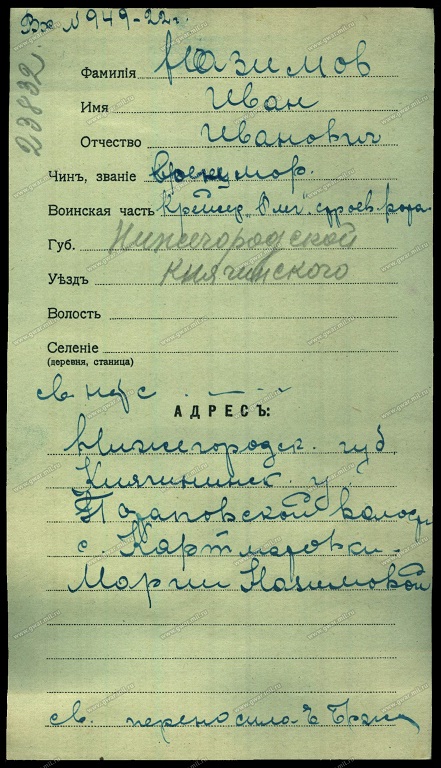 Вх №949-22г.
23832.
Фамилія Назимов
Имя Иван
Отчество Иванович
Чинъ, званіе мор.
Воинская часть Крейсер строев. рота
Губ. Нижегородской
Уѣздъ Княгинского
Волость
Селеніе
(деревня, станица)
св.
АДРЕСЪ:
Нижегородск. губ.
Княгининск. у.
волости
с. Картмазовки.
Марии Назимовой
св.